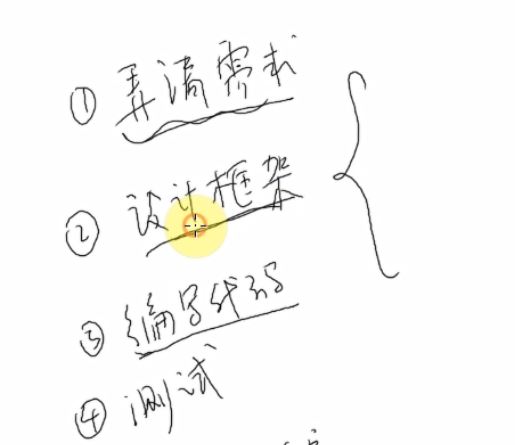 ① 弄清需求
② 设计框架
③ 编写代码
④ 测试